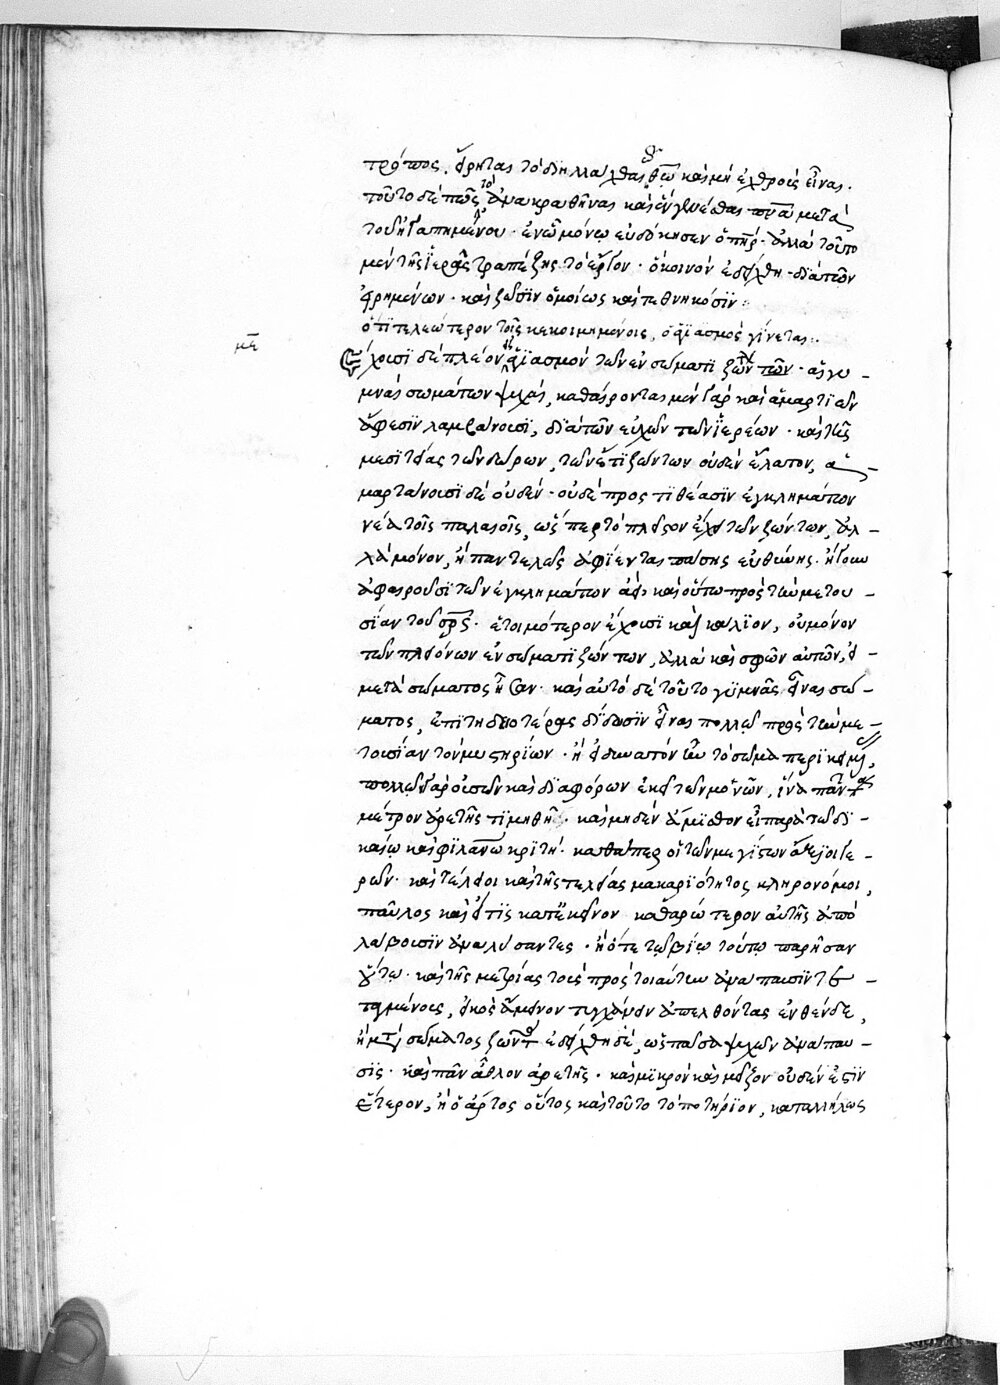 τρόπος. εἴρηται τὸ διηλλάχθαι θῶ καὶ μὴ ἐχθροὺς εἶναι.
τοῦτο δὲ πῶς; τὸ ἀνακραθῆναι καὶ ἓν γενέσθαι πνᾶ μετὰ
τοῦ ἠγαπημένου· ἐν ᾧ μόνῳ εὐδόκησεν ὁ πὴρ· ἀλλὰ τοῦτο
μὲν τῆς ἱερᾶς τραπέζης τὸ ἔργον· ὃ κοινὸν ἐδείχθη διὰ τῶν
εἰρημένων· καὶ ζῶσϊν ὁμοίως καὶ τεθνηκόσϊν:
ὅτι τελεώτερον τοῖς κεκοιμημένοις, ὁ ἁγϊασμὸς γίνεται:
με
Ἔχουσϊ δὲ πλέον εἰς ἁγϊασμὸν τῶν ἐν σώματϊ ζώντων αἱ γυ-
μναὶ σωμάτων ψυχαί, καθαίρονται μὲν γὰρ καὶ ἁμαρτϊῶν
ἄφεσϊν λαμβάνουσϊ, διὰ τῶν εὐχῶν τῶν ἱερέων· καὶ τῆς
μεσϊτείας τῶν δώρων, τῶν ἔτϊ ζώντων οὐδὲν ἔλαττον, ἁ-
μαρτάνουσϊ δὲ οὐδέν· οὐδὲ προστϊθέασϊν ἐγκλημάτων
νέα τοῖς παλαιοῖς, ὥσπερ τὸ πλεῖον ἔχει τῶν ζώντων, ἀλ-
λὰ μόνον, ἢ παντελῶς ἀφϊενται πάσης εὐθύνης· ἢ γοῦν
ἀφαιροῦσϊ τῶν ἐγκλημάτων ἀεί· καὶ οὕτω πρὸς τὴν μετου-
σίαν τοῦ σρς· ἑτοιμότερον ἔχουσϊ καὶ κάλλϊον, οὐ μόνον
τῶν πλειόνων ἐν σώματϊ ζώντων, ἀλλὰ καὶ σφῶν αὐτῶν, εἰ
μετὰ σώματος ἦσαν· καὶ αὐτὸ δὲ τοῦτο γϋμνὰς εἶναι σώ-
ματος, ἐπϊτηδειοτέρας δίδωσϊν εἶναι πολλῷ πρὸς τὴν με-
τουσίαν τῶν μυστηρίων· ἢ εἰ δυνατὸν ἦν τὸ σῶμα περϊκειμένας,
πολλῶν γὰρ οὐσῶν καὶ διαφόρων ἐκεῖ τῶν μονῶν, ἵνα πᾶν
μέτρον ἀρετῆς τϊμηθῇ· καὶ μηδὲν ἄμϊσθον εἴη παρὰ τῷ δϊ-
καίῳ καὶ φϊλανῳ κρϊτῇ· καθάπερ οἱ τῶν μεγίστων ἄξϊοι γε-
ρῶν· καὶ τέλειοι καὶ τῆς τελείας μακαρϊότητος κληρονόμοι,
παῦλος καὶ εἴ τϊς κατ' ἐκεῖνον καθαρώτερον αὐτῆς ἀπο-
λαύουσϊν ἀναλύσαντες· ἢ ὅτε τῷ βίῳ τούτῳ παρῆσαν
οὕτω· καὶ τῆς μετρίας τοὺς πρὸς τοιαύτην ἀνάπαυσϊν τε-
ταγμένους, εἰκὸς ἄμεινον τυγχάνειν ἀπελθόντας ἐνθένδε,
ἢ μετὰ σώματος ζῶντας ἐδείχθη δέ, ὡς πᾶσα ψυχῶν ἀνάπαυ-
σϊς· καὶ πᾶν ἆθλον ἀρετῆς· καὶ μϊκρὸν καὶ μεῖζον οὐδέν ἐστϊν
ἕτερον, ἢ ὁ ἄρτος οὗτος καὶ τοῦτο τὸ ποτήρϊον, καταλλήλως